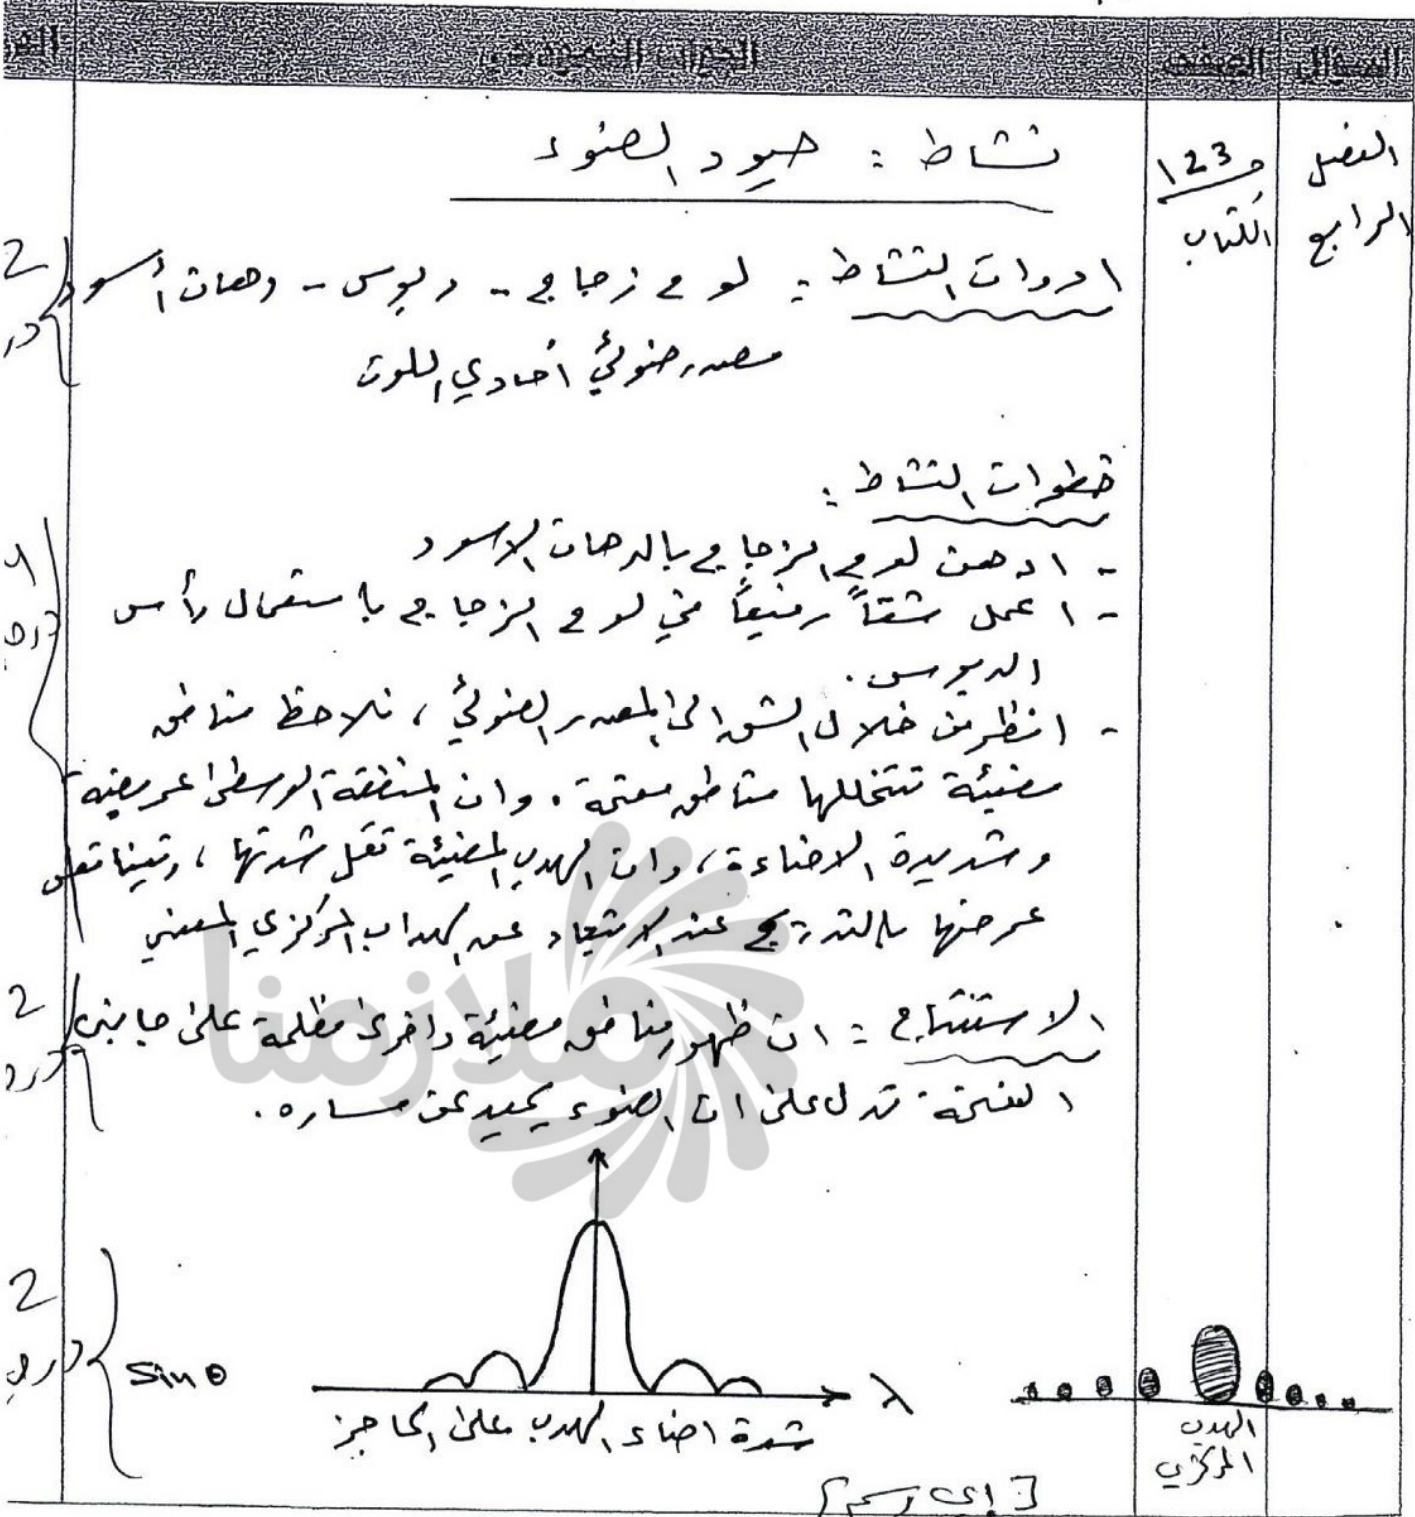 السؤال الصفحة الجواب النموذجي
الفصل الرابع
ص 123
الكتاب
نشاط : حيود الضوء
ادوات النشاط : لوح زجاج - دبوس - دهان أسود
مصدر ضوئي احادي اللون
2 در
خطوات النشاط :
- ادهن لوح الزجاج بالدهان الاسود
- اعمل شقاً رفيعاً في لوح الزجاج باستعمال رأس
الدبوس .
- انظر من خلال الشق الى المصدر الضوئي ، نلاحظ مناطق
مضيئة تتخللها مناطق معتمة . وان المنطقة الوسطى عريضة
وشديدة الاضاءة ، وان الهدب المضيئة تقل شدتها ،
عرضها بالتدريج عند الابتعاد عن الهداب المركزي المضيء
الاستنتاج : ان ظهور مناطق مضيئة واخرى مظلمة على جانبي
2
الفتحة تدل على ان الضوء يحيد عن مساره .
ملازمنا
2
Sin θ
λ
شدة اضاء الهدب على الحاجز
الهدب
المركزي
[ اي رسم ]